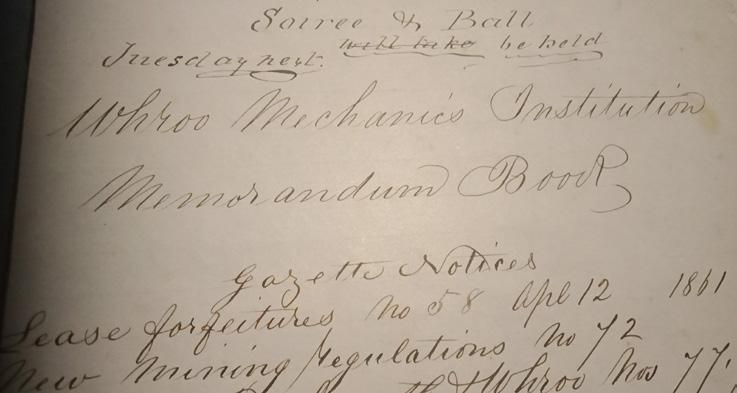 Soiree & Ball
Tuesday next. will take be held
Whroo Mechanics Institution
Memorandum Book
Gazette Notices
Lease forfeitures No 58 Apl 12 1861
New mining regulations No 72
Whroo Nos 77